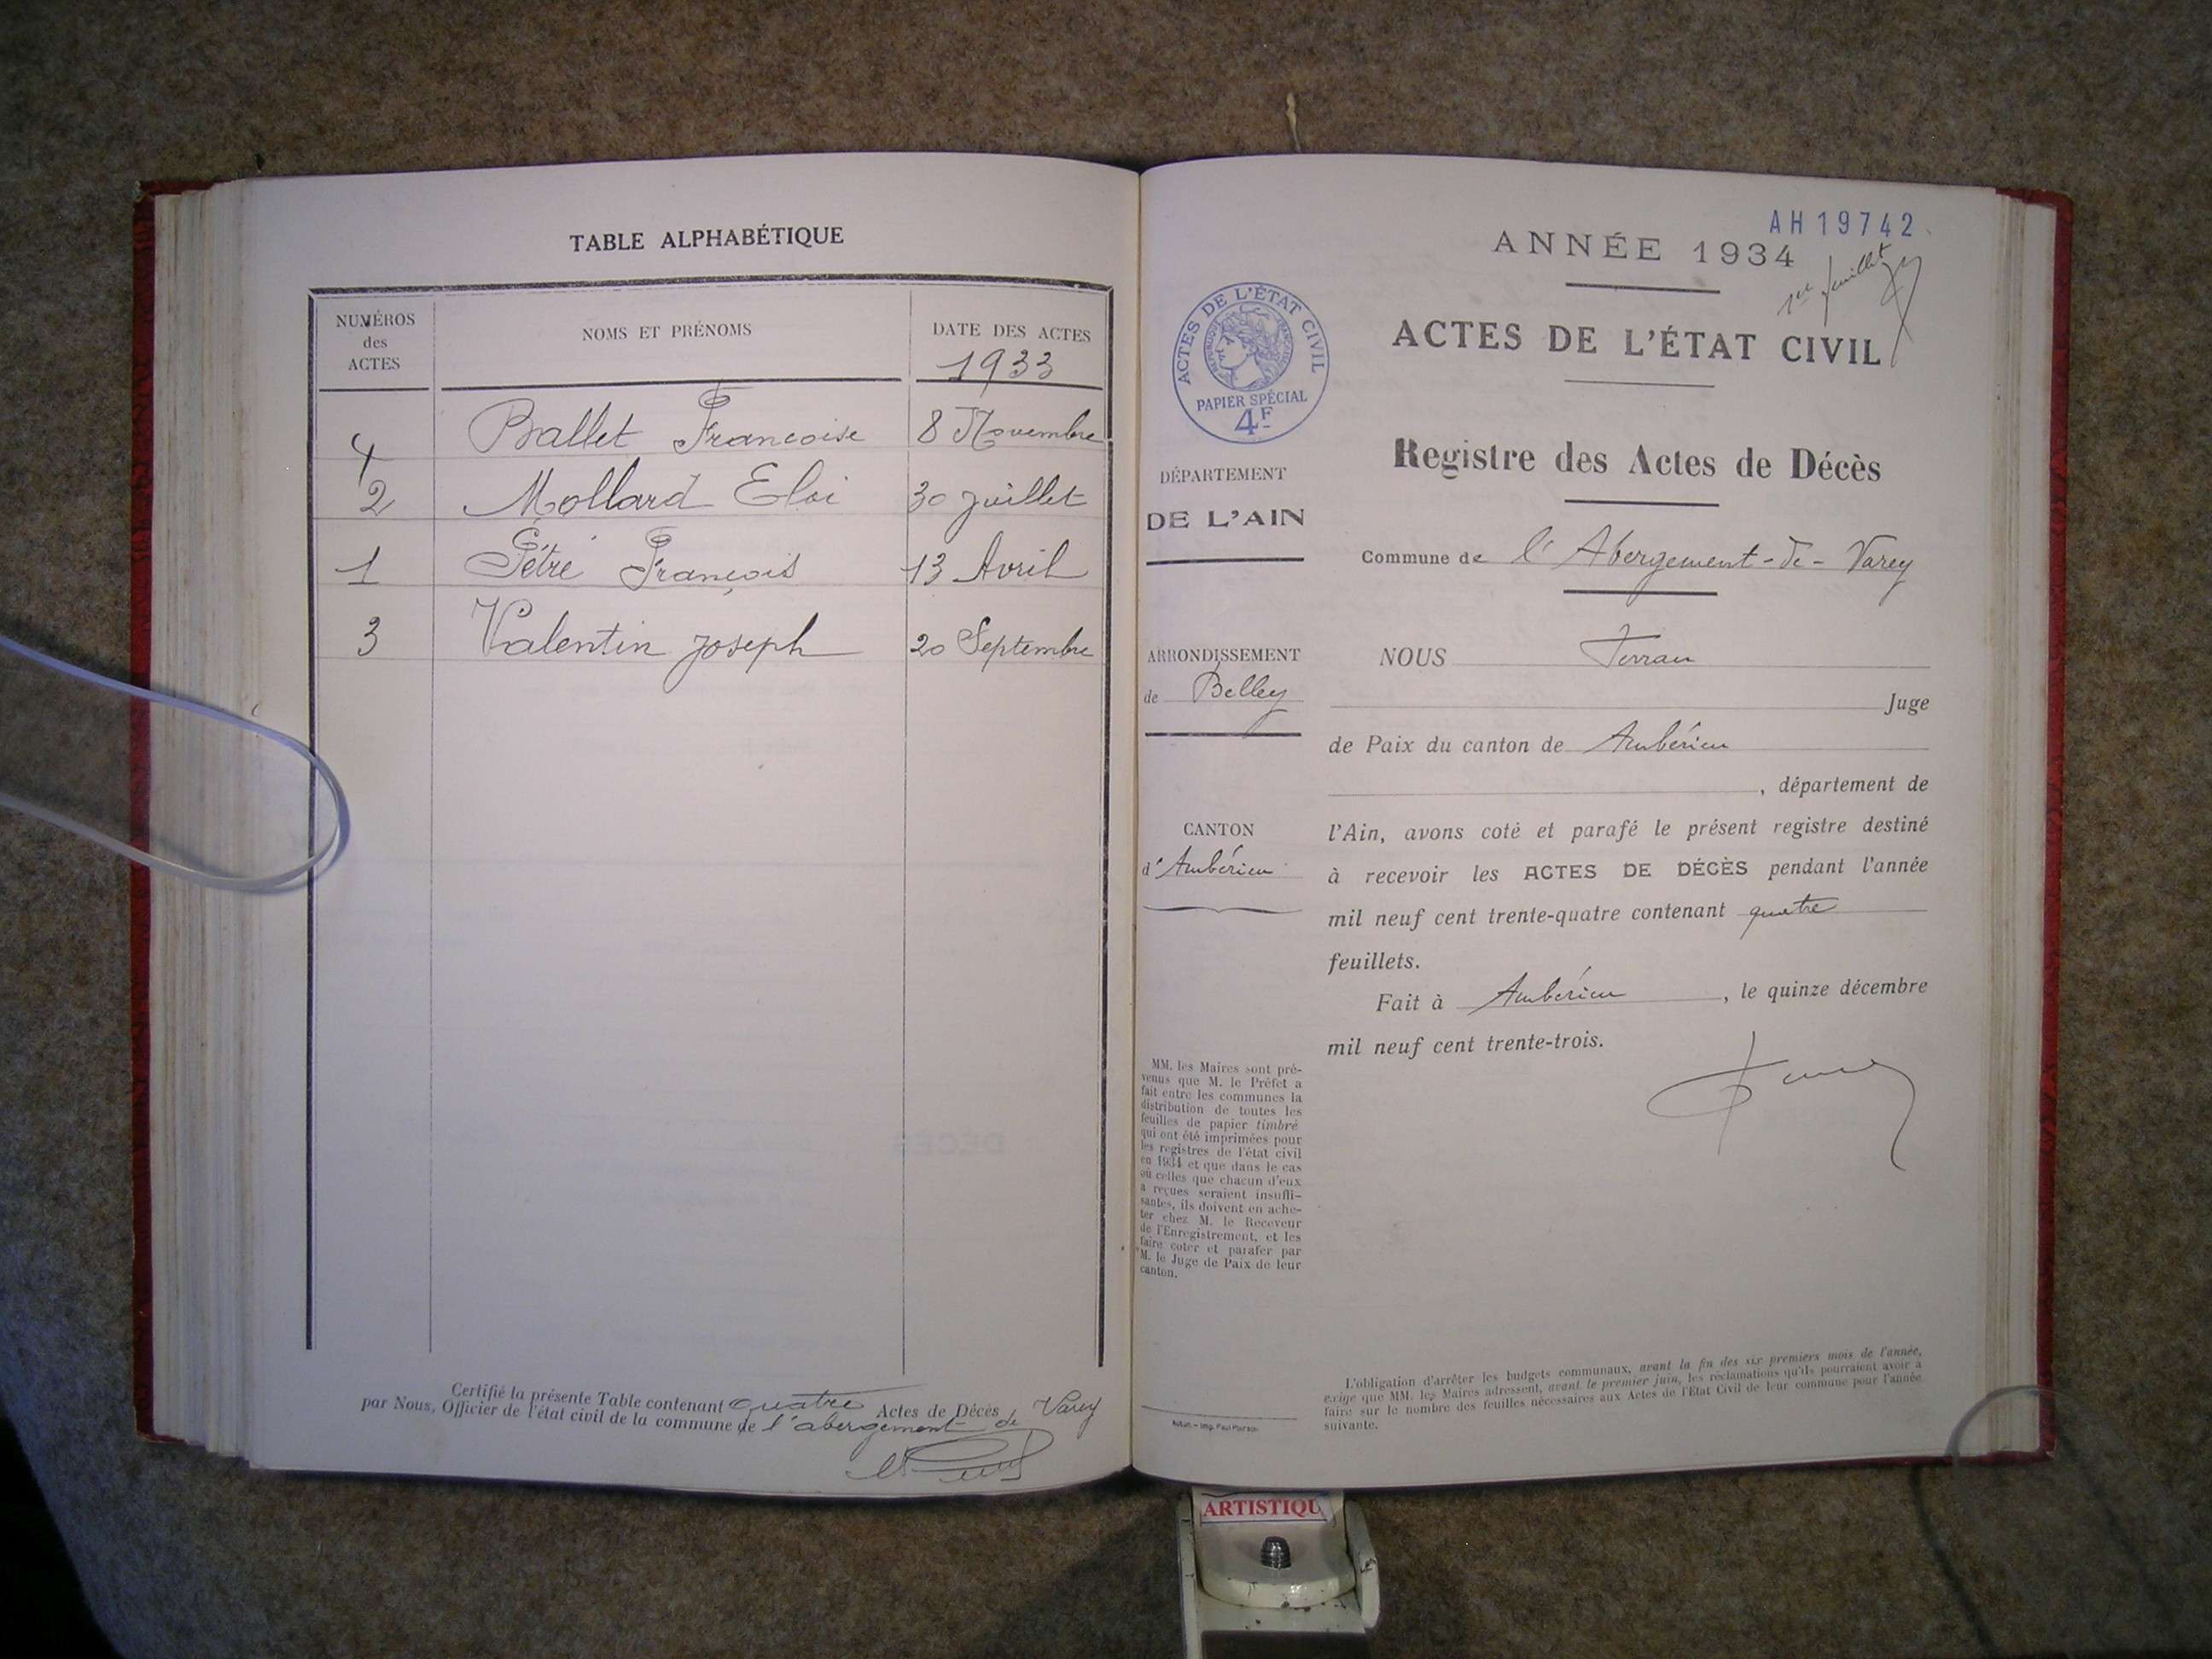 TABLE ALPHABÉTIQUE
NUMÉROS des ACTES
NOMS ET PRÉNOMS
DATE DES ACTES
1933
4 Ballet Francoise 8 Novembre
2 Mollard Eloi 30 Juillet
1 Pétré François 13 Avril
3 Valentin Joseph 20 Septembre
Certifié la présente Table contenant quatre Actes de Décès
par Nous, Officier de l'état civil de la commune de l'abergement de Varey
AH 19742
ANNÉE 1934
1er feuillet
ACTES DE L'ÉTAT CIVIL
ACTES DE L'ÉTAT CIVIL
RÉPUBLIQUE FRANÇAISE
PAPIER SPÉCIAL
4F
Registre des Actes de Décès
Commune de l'Abergement-de-Varey
DÉPARTEMENT
DE L'AIN
ARRONDISSEMENT
de Belley
CANTON
d'Ambérieu
MM. les Maires sont pré-
venus que M. le Préfet a
fait entre les communes la
distribution de toutes les
feuilles de papier timbré
qui ont été imprimées pour
les registres de l'état civil
en 1934 et que dans le cas
où celles que chacun d'eux
a reçues seraient insuffi-
santes, ils doivent en ache-
ter chez M. le Receveur
de l'Enregistrement, et les
faire coter et parafer par
M. le Juge de Paix de leur
canton.
NOUS
Juge
de Paix du canton de Ambérieu
, département de
l'Ain, avons coté et parafé le présent registre destiné
à recevoir les ACTES DE DÉCÈS pendant l'année
mil neuf cent trente-quatre contenant quatre
feuillets.
Fait à Ambérieu , le quinze décembre
mil neuf cent trente-trois.
L'obligation d'arrêter les budgets communaux, avant la fin des six premiers mois de l'année,
exige que MM. les Maires adressent, avant le premier juin, les réclamations qu'ils pourraient avoir à
faire sur le nombre des feuilles nécessaires aux Actes de l'État Civil de leur commune pour l'année
suivante.
DÉCÈS
ARTISTIQU